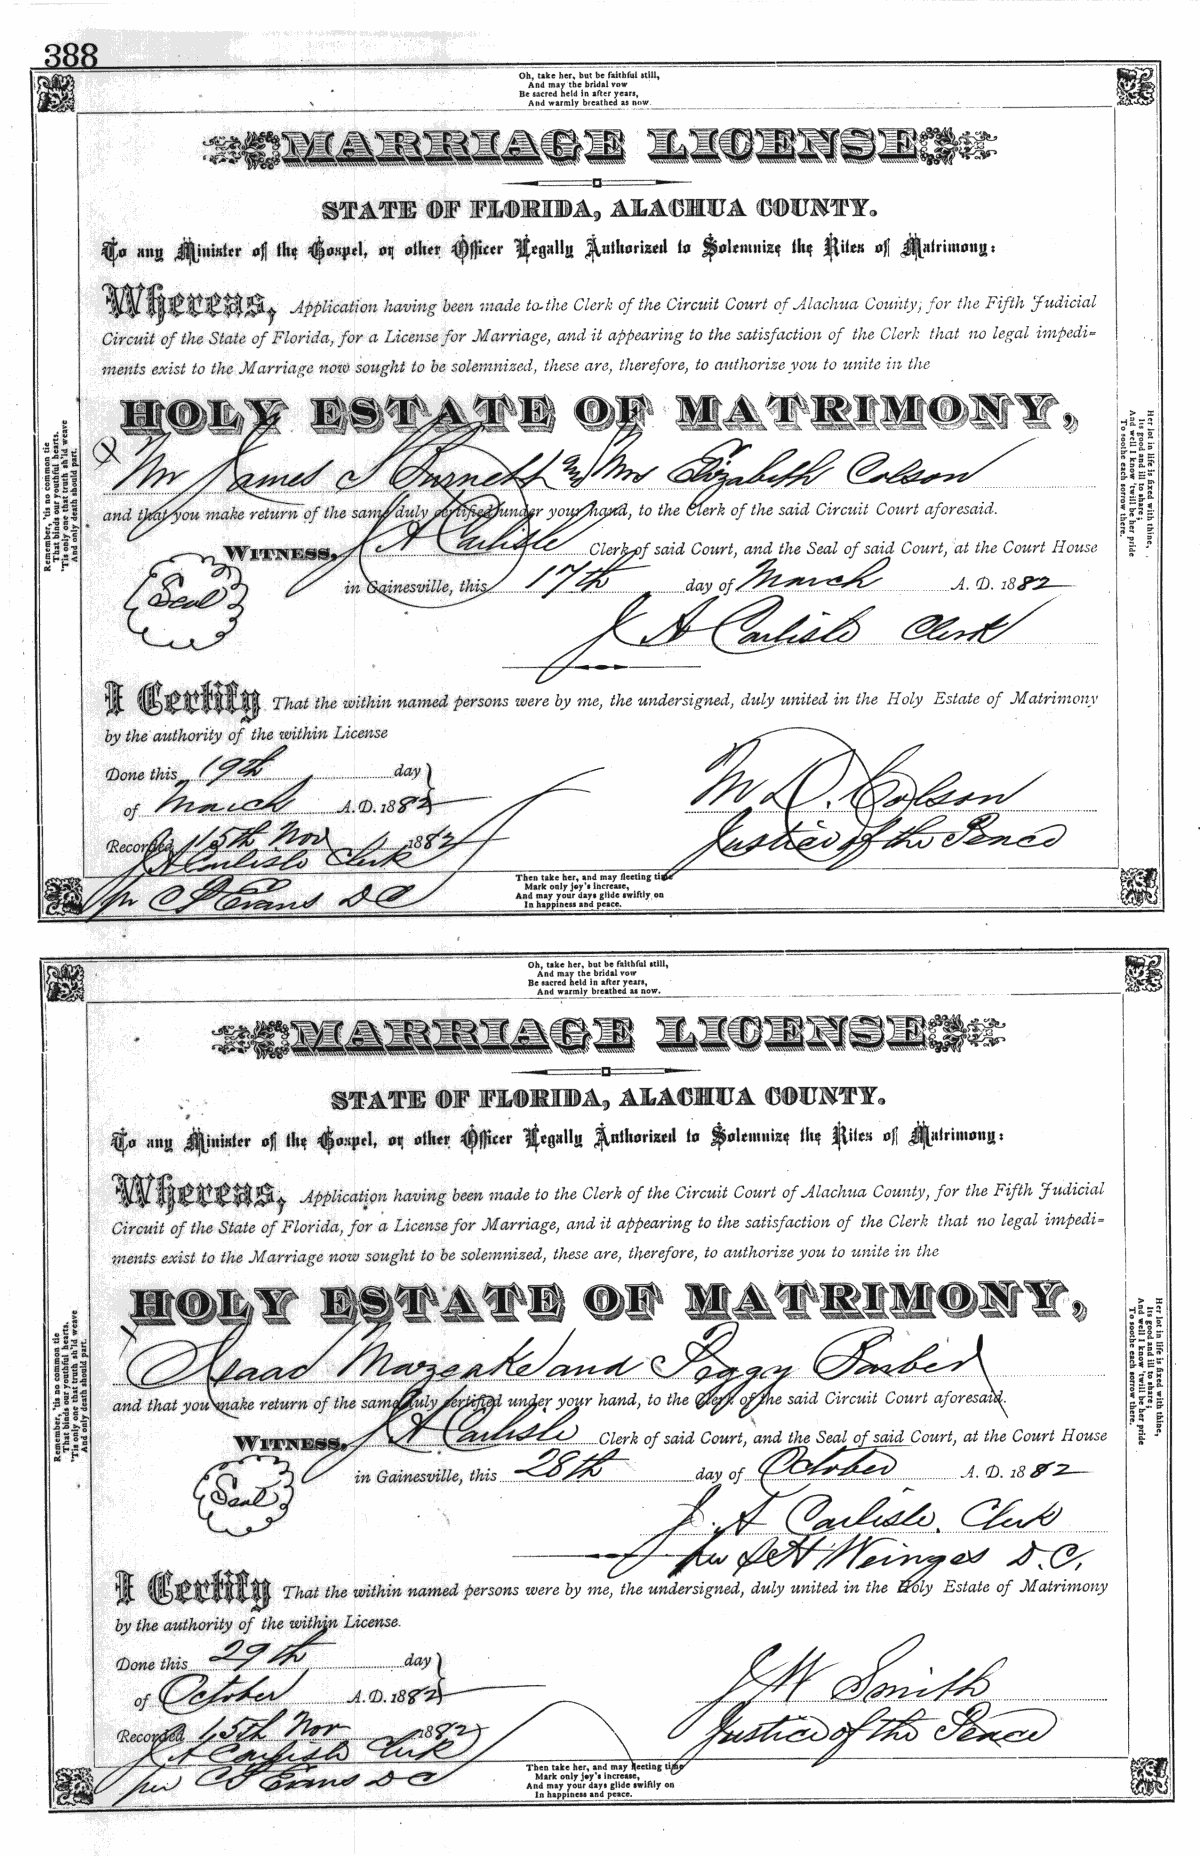 388
Oh, take her, but be faithful still,
And may the bridal vow
Be sacred held in after years,
And warmly breathed as now.
MARRIAGE LICENSE
STATE OF FLORIDA, ALACHUA COUNTY.
To any Minister of the Gospel, or other Officer Legally Authorized to Solemnize the Rites of Matrimony:
Whereas, Application having been made to the Clerk of the Circuit Court of Alachua County, for the Fifth Judicial
Circuit of the State of Florida, for a License for Marriage, and it appearing to the satisfaction of the Clerk that no legal impedi-
ments exist to the Marriage now sought to be solemnized, these are, therefore, to authorize you to unite in the
HOLY ESTATE OF MATRIMONY,
Mr James S Burnett and Mrs Elizabeth Colson
and that you make return of the same duly certified under your hand, to the Clerk of the said Circuit Court aforesaid.
WITNESS, J A Carlisle Clerk of said Court, and the Seal of said Court, at the Court House
Seal
in Gainesville, this 17th day of March A. D. 1882
J A Carlisle Clerk
I Certify That the within named persons were by me, the undersigned, duly united in the Holy Estate of Matrimony
by the authority of the within License
Done this 19th day
of March A.D. 1882
M D. Colson
Recorded 15th Nov 1882
Justice of the Peace
J A Carlisle Clerk
per C S Evans D C
Then take her, and may fleeting time
Mark only joy's increase,
And may your days glide swiftly on
In happiness and peace.
Remember, 'tis no common tie
That binds our youthful hearts,
'Tis only one that truth sh'ld weave
And only death should part.
Her lot in life is fixed with thine,
Its good and ill to share;
And well I know 'twill be her pride
To soothe each sorrow there.
Oh, take her, but be faithful still,
And may the bridal vow
Be sacred held in after years,
And warmly breathed as now.
MARRIAGE LICENSE
STATE OF FLORIDA, ALACHUA COUNTY.
To any Minister of the Gospel, or other Officer Legally Authorized to Solemnize the Rites of Matrimony:
Whereas, Application having been made to the Clerk of the Circuit Court of Alachua County, for the Fifth Judicial
Circuit of the State of Florida, for a License for Marriage, and it appearing to the satisfaction of the Clerk that no legal impedi-
ments exist to the Marriage now sought to be solemnized, these are, therefore, to authorize you to unite in the
HOLY ESTATE OF MATRIMONY,
Isaac and Peggy Barber
and that you make return of the same duly certified under your hand, to the Clerk of the said Circuit Court aforesaid.
WITNESS, J A Carlisle Clerk of said Court, and the Seal of said Court, at the Court House
Seal
in Gainesville, this 28th day of October A. D. 1882
J. A Carlisle. Clerk
per S H Weinges D. C.
I Certify That the within named persons were by me, the undersigned, duly united in the Holy Estate of Matrimony
by the authority of the within License.
Done this 29th day
of October A.D. 1882
J W Smith
Recorded 15th Nov 1882
Justice of the Peace
J A Carlisle Clerk
per C S Evans D C
Then take her, and may fleeting time
Mark only joy's increase,
And may your days glide swiftly on
In happiness and peace.
Remember, 'tis no common tie
That binds our youthful hearts,
'Tis only one that truth sh'ld weave
And only death should part.
Her lot in life is fixed with thine,
Its good and ill to share;
And well I know 'twill be her pride
To soothe each sorrow there.